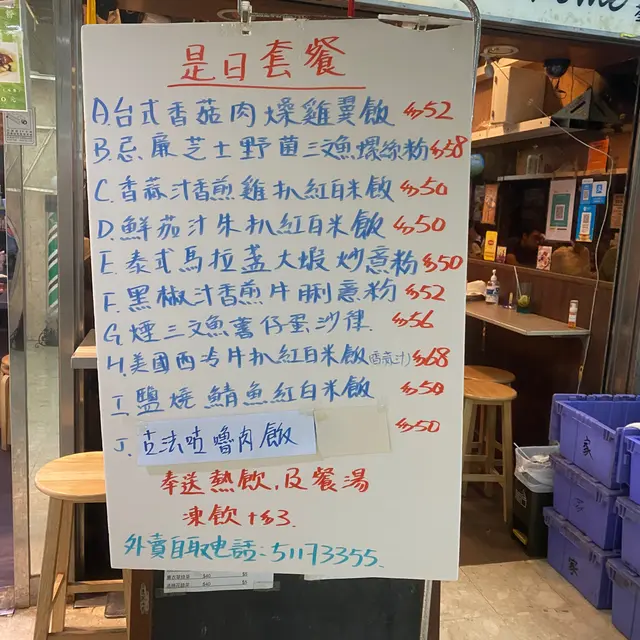 是日套餐
A.台式香菇肉燥雞翼飯 $52
B.忌廉芝士野菌三文魚螺絲粉 $58
C.香蒜汁香煎雞扒紅白米飯 $50
D.鮮茄汁朱扒紅白米飯 $50
E.泰式馬拉盞大蝦炒意粉 $50
F.黑椒汁香煎牛脷意粉 $52
G.煙三文魚薯仔蛋沙律. $56
H.美國西冷牛扒紅白米飯(香蒜汁) $68
I.鹽燒鯖魚紅白米飯 $50
J. 古法咕嚕肉飯 $50
奉送熱飲,及餐湯
凍飲+$3.
外賣自取電話:51173355.
家
家
家